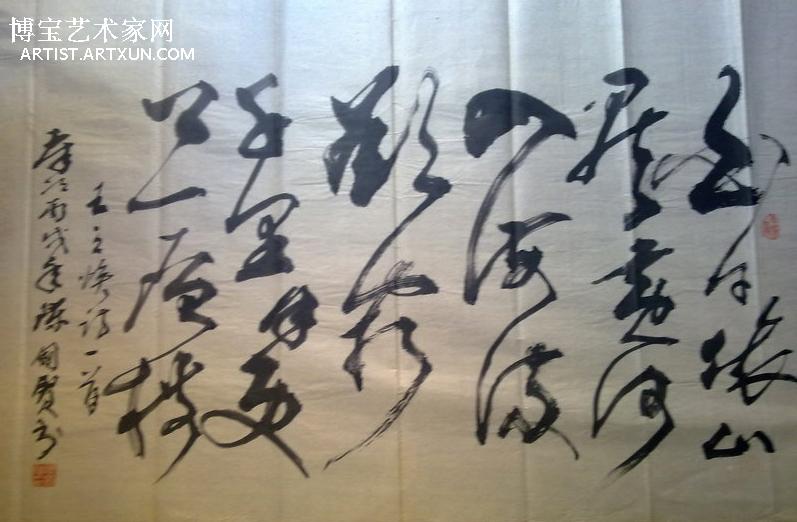 博宝艺术家网
ARTIST.ARTXUN.COM
白日依山
盡黄河
入海流
欲窮
千里目更
上一層樓
王之涣詩一首
歲次丙戌年 國賢书